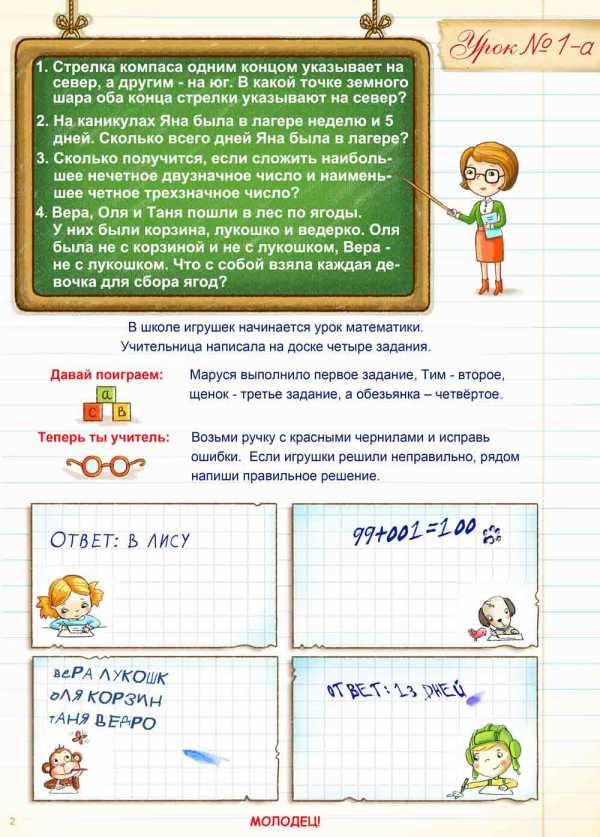 Урок № 1-а
1. Стрелка компаса одним концом указывает на
север, а другим - на юг. В какой точке земного
шара оба конца стрелки указывают на север?
2. На каникулах Яна была в лагере неделю и 5
дней. Сколько всего дней Яна была в лагере?
3. Сколько получится, если сложить наиболь-
шее нечетное двузначное число и наимень-
шее четное трехзначное число?
4. Вера, Оля и Таня пошли в лес по ягоды.
У них были корзина, лукошко и ведерко. Оля
была не с корзиной и не с лукошком, Вера -
не с лукошком. Что с собой взяла каждая де-
вочка для сбора ягод?
В школе игрушек начинается урок математики.
Учительница написала на доске четыре задания.
Давай поиграем:
Маруся выполнило первое задание, Тим - второе,
щенок - третье задание, а обезьянка – четвёртое.
а
с в
Теперь ты учитель:
Возьми ручку с красными чернилами и исправь
ошибки. Если игрушки решили неправильно, рядом
напиши правильное решение.
ОТВЕТ: В ЛИСУ
99+001=100
ВЕРА ЛУКОШК
ОЛЯ КОРЗИН
ТАНЯ ВЕДРО
ОТВЕТ: 13 ДНЕЙ
2
МОЛОДЕЦ!